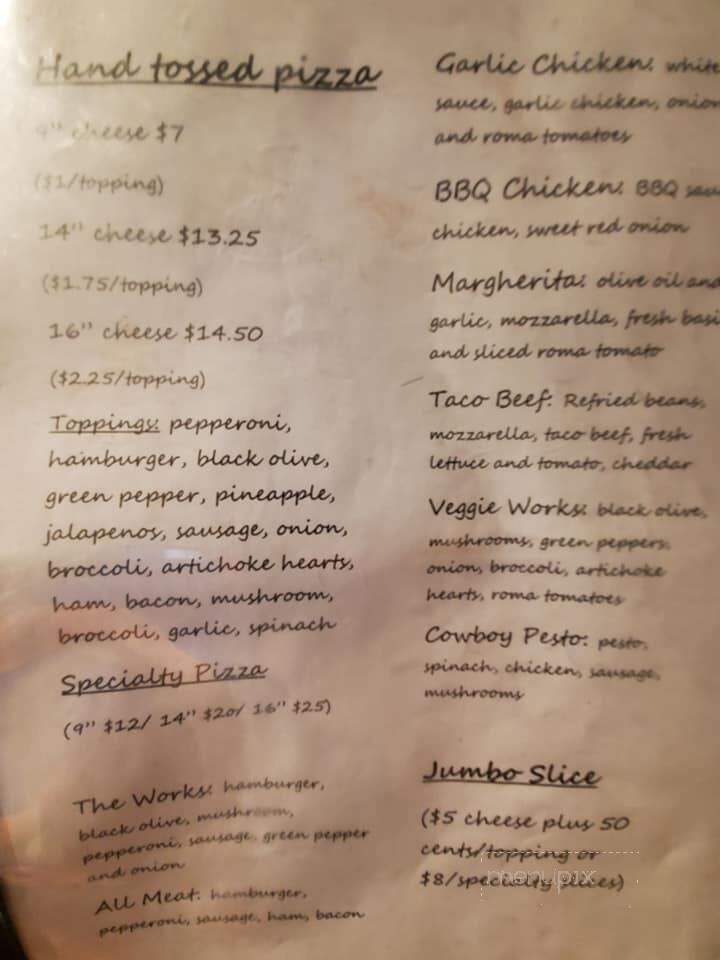 Hand tossed pizza
9" cheese $7
($1/topping)
14" cheese $13.25
($1.75/topping)
16" cheese $14.50
($2.25/topping)
Toppings: pepperoni,
hamburger, black olive,
green pepper, pineapple,
jalapenos, sausage, onion,
broccoli, artichoke hearts,
ham, bacon, mushroom,
broccoli, garlic, spinach
Specialty Pizza
(9" $12/ 14" $20/ 16" $25)
The Works: hamburger,
black olive, mushroom,
pepperoni, sausage, green pepper
and onion
All Meat: hamburger,
pepperoni, sausage, ham, bacon
Garlic Chicken: white
sauce, garlic chicken, onion
and roma tomatoes
BBQ Chicken: BBQ sau
chicken, sweet red onion
Margherita: olive oil and
garlic, mozzarella, fresh basi
and sliced roma tomato
Taco Beef: Refried beans,
mozzarella, taco beef, fresh
lettuce and tomato, cheddar
Veggie Works: black olive,
mushrooms, green peppers,
onion, broccoli, artichoke
hearts, roma tomatoes
Cowboy Pesto: pesto,
spinach, chicken, sausage,
mushrooms
Jumbo Slice
($5 cheese plus 50
cents/topping or
$8/specialty slices)
menupix